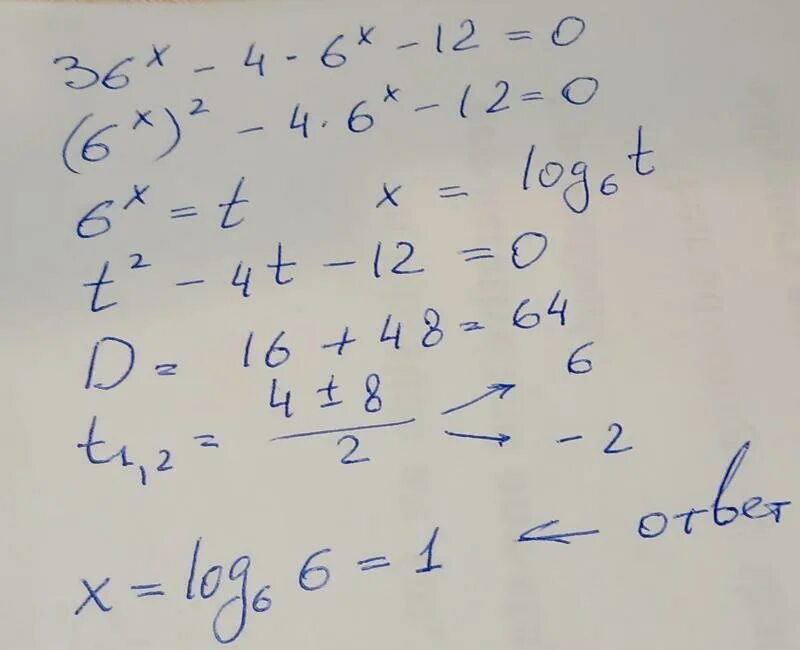 36ˣ - 4 · 6ˣ - 12 = 0
(6ˣ)² - 4 · 6ˣ - 12 = 0
6ˣ = t    x = log₆ t
t² - 4t - 12 = 0
D = 16 + 48 = 64
t₁,₂ = (4 ± 8)/2 ↗ 6 → -2
x = log₆ 6 = 1 ← ответ